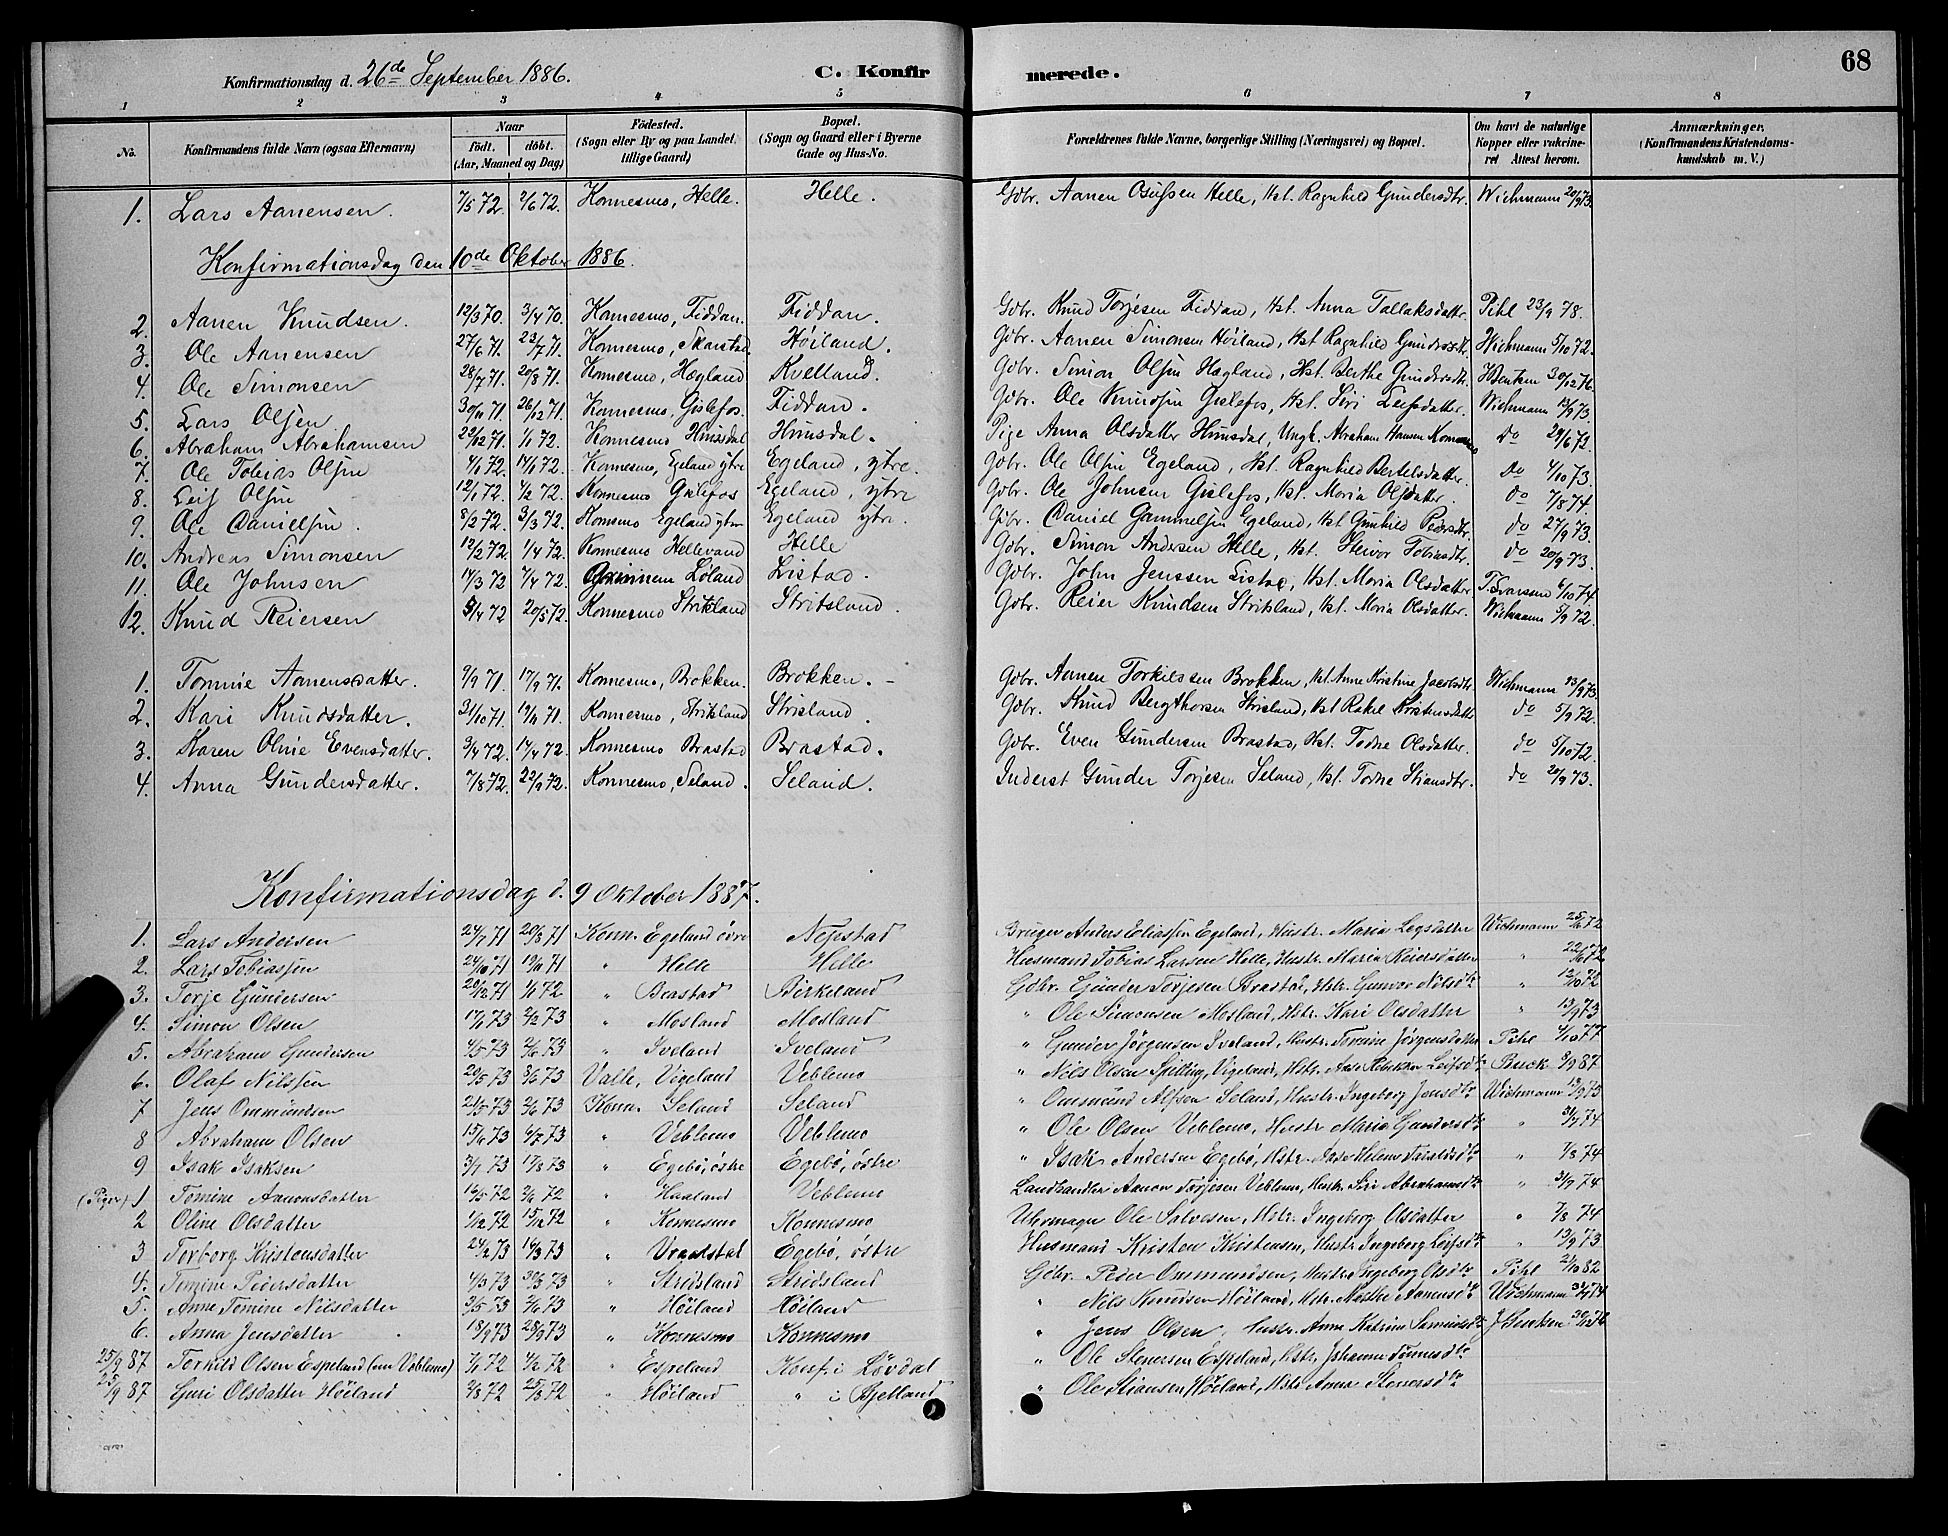 68
Konfirmationsdag d. 26de September 1886. C. Konfirmerede.
1 2 3 4 5 6 7 8
No. Konfirmandens fulde Navn (ogsaa Efternavn) Naar födt. döbt. (Aar, Maaned og Dag) Födested. (Sogn eller By og paa Landet tillige Gaard) Bopæl. (Sogn og Gaard eller i Byerne Gade og Hus-No. Forældrenes fulde Navne, borgerlige Stilling (Næringsvei) og Bopæl. Om havt de naturlige Kopper eller vakcineret Attest herom. Anmærkninger. (Konfirmandens Kristendomskundskab m. V.)
1. Lars Aanensen. 7/5 72. 2/6 72. Konnesmo, Helle. Helle. Gdbr. Aanen Osufsen Helle, Hst. Ragnhild Gundersdtr. Wichmann 20/9 73.
Konfirmationsdag den 10de Oktober 1886.
2. Aanen Knudsen. 12/3 70. 3/4 70. Konnesmo, Fiddan. Fiddan. Gdbr. Knud Torjesen Fiddan, Hst. Anna Tallaksdattr. Pihl 23/9 78.
3. Ole Aanensen 27/6 71. 23/7 71. Konnesmo, Skarstad. Høiland. Gdbr. Aanen Simonsen Høiland, Hst Ragnhild Gundersdtr. Wichmann 5/10 72.
4. Ole Simonsen 28/7 71. 20/8 71. Konnesmo, Hægland Kvelland. Gdbr. Simon Olsen Hægland, Hst. Berthe Gundersdtr. HBentzen 30/12 76.
5. Lars Olsen 30/11 71. 26/12 71. Konnesmo, Gislefos. Fiddan. Gdbr. Ole Knudsen Gislefos, Hst. Siri Leifsdatter. Wichmann 13/9 73.
6. Abraham Abrahamsen 22/12 71. 1/1 72. Konnesmo Hunsdal Hunsdal. Pige Anna Olsdatter Hunsdal, Ungk. Abraham Hansen Konnesmo do 29/6 73.
7. Ole Tobias Olsen 4/1 72. 14/1 72. Konnesmo, Egeland ytre Egeland, ytre. Gdbr. Ole Olsen Egeland, Hst. Ragnhild Bertelsdatter. do 4/10 73.
8. Leif Olsen 12/1 72. 4/2 72. Konnesmo Gislefos Egeland, ytre Gdbr. Ole Johnsen Gislefos, Hst. Maria Olsdatter. do 7/8 74.
9. Ole Danielsen. 8/2 72. 3/3 72. Konnesmo Egeland ytre Egeland ytre. Gdbr. Daniel Gammelsen Egeland, Hst Gunhild Pedersdtr. do 27/9 73.
10. Andreas Simonsen 12/2 72. 1/4 72. Konnesmo Hellevand Helle Gdbr. Simon Andersen Helle, Hst. Steivor Tobiasdtr. do 20/9 73.
11. Ole Johnsen 14/3 72 7/4 72. Grinnem Løland Listad. Gdbr. John Jenssen Listad, Hst. Maria Olsdatter. T. Ivarsen 6/10 74.
12. Knud Reiersen 5/4 72 20/5 72. Konnesmo Stritsland Stritsland. Gdbr. Reier Knudsen Stritsland, Hst. Maria Olsdatter. Wichmann 5/9 72.
1. Tomine Aanensdatter. 9/9 71. 17/9 71. Konnesmo, Brokken. Brokken. Gdbr. Aanen Torkilssen Brokken, Hst Anne Kristine Jacobsdtr. Wichmann 13/9 73.
2. Kari Knudsdatter. 31/10 71. 19/11 71. Konnesmo, Stritsland Strisland. Gdbr. Knud Bergthorsen Strisland, Hst Rakel Kristensdatter do 5/9 72.
3. Karen Oline Evensdatter. 9/4 72. 14/4 72. Konnesmo Brastad Brastad. Gdbr. Even Gundersen Brastad, Hst. Todne Olsdatter. do 5/10 72.
4. Anna Gundersdatter. 7/8 72. 22/9 72. Konnesmo, Seland. Seland. Inderst Gunder Torjesen Seland, Hst. Todne Stiansdtr. do 20/9 73.
Konfirmationsdag d. 9 Oktober 1887.
1. Lars Andersen 24/7 71 20/8 71 Konn. Egeland övre Nepstad Bruger Anders Eliassen Egeland, Hustr. Maria Legsdatter Wichmann
2. Lars Tobiassen 24/10 71 19/11 71 " Helle Helle Husmand Tobias Larsen Helle, Hustr. Maria Reiersdatter "
3. Torje Gundersen 20/12 71 1/1 72 " Brastad Birkeland Gdbr. Gunder Torjesen Brastad, Hstr. Gunvor Nilsdtr " 12/10 72
4. Simon Olsen 17/1 73 2/2 73 " Mosland Mosland " Ole Simonsen Mosland, Hstr. Kari Olsdatter " 13/9 73
5. Abraham Gundersen 4/5 73 2/6 73 " Iveland Iveland " Gunder Jörgensen Iveland, Hustr. Tomine Jörgensdatter Pihl 4/10 77
6. Olaf Nilssen 20/5 73 8/6 73 Valle, Vigeland Veblemo " Nils Olsen Spilling, Vigeland, Hstr. Leifsdtr Buck 9/9 87
7 Jens Ommundsen 21/5 73 2/6 73 Konn. Seland Seland " Ommund Alfsen Seland, Hustr. Ingeborg Jensdtr Wichmann 13/9 73
8 Abraham Olsen 15/6 73 6/7 73 " Veblemo Veblemo " Ole Olsen Veblemo, Hustr Maria Gundersdtr " 31/7 74
9 Isak Isaksen 3/7 73 17/8 73 " Egebö, östre Egebö, östre " Isak Andersen Egebø, Hstr. Helene Taraldsdtr " 7/8 74
(Piger) 1 Tomine Aanonsdatter 16/5 72 2/6 72 " Haaland Veblemo Landhandler Aanon Torjesen Veblemo, Hustr Siri Abrahamsdtr " 31/7 74
2 Oline Olsdatter 1/12 72 15/12 72 " Konnesmo Konnesmo Uhrmager Ole Salvesen, Hstr. Ingeborg Olsdatter " 7/8 74
3 Torborg Kristensdatter 24/2 73 16/3 73 " Vraalstal Egebö, östre Husmand Kristen Kristensen, Hustr Ingeborg Leifsdtr " 13/9 73
4. Tomine Pedersdatter 4/3 73 30/3 73 " Stridsland Stridsland Gdbr. Peder Ommundsen, Hustr. Ingeborg Olsdtr Pihl 21/10 82
5. Anne Tomine Nilsdatter 3/5 73 2/6 73 " Höiland Höiland " Nils Knudsen Höiland, Hstr. Marthe Aanensdtr Wichmann 31/7 74
6. Anna Jensdatter 18/9 73 28/9 73 " Konnesmo Konnesmo " Jens Olsen, Hustr. Anna Katrine Samuelsdtr J. Bentzen 30/12 76
25/9 87 Torkild Olsen Espeland (nu Veblemo) 7/1 72 4/2 72 " Espeland Konf. i Lövdal " Ole Stenersen Espeland, Hstr. Johanne Tönnesdtr
25/9 87 Guri Olsdatter Höiland 2/3 72 25/3 72 " Höiland " i Bjelland " Ole Stiansen Höiland, Hstr Anna Stenersdtr